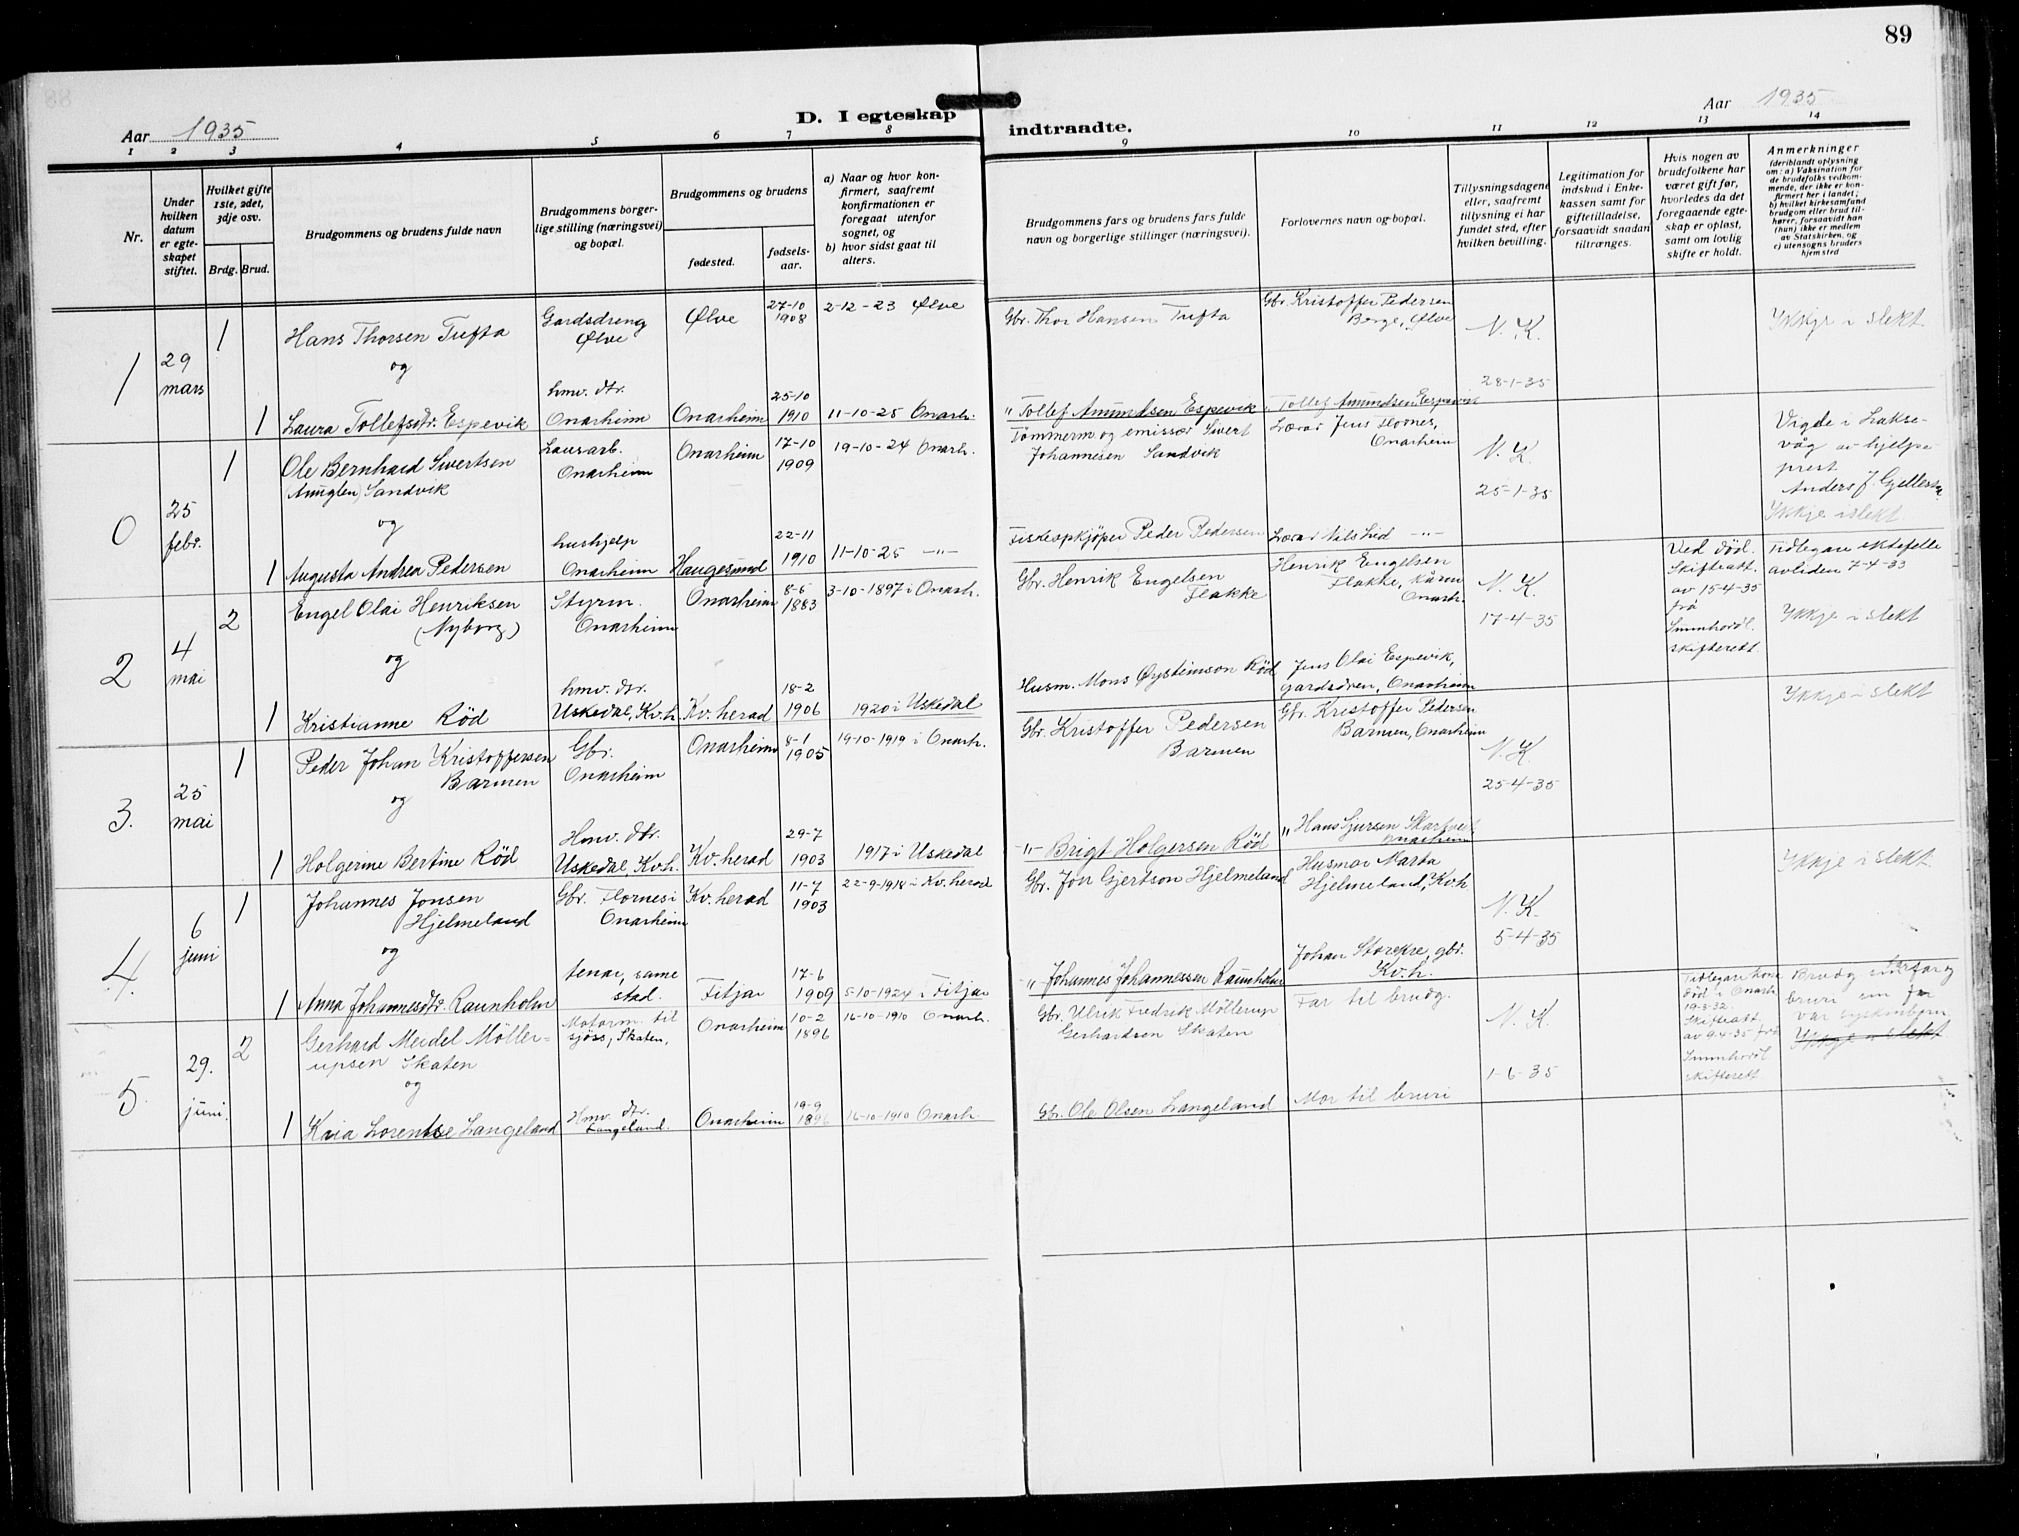 89
Aar 1935
D. I egteskap indtraadte.
Aar 1935
1 2 3 4 5 6 7 8 9 10 11 12 13 14
Nr.
Under hvilken datum er egteskapet stiftet.
Hvilket gifte 1ste, 2det, 3dje osv.
Brdg. Brud.
Brudgommens og brudens fulde navn
Brudgommens borgerlige stilling (næringsvei) og bopæl.
Brudgommens og brudens
fødested.
fødselsaar.
a) Naar og hvor konfirmert, saafremt konfirmationen er foregaat utenfor sognet, og
b) hvor sidst gaat til alters.
Brudgommens fars og brudens fars fulde navn og borgerlige stillinger (næringsvei).
Forlovernes navn og bopæl.
Tillysningsdagene eller, saafremt tillysning ei har fundet sted, efter hvilken bevilling.
Legitimation for indskud i Enkekassen samt for giftetilladelse, forsaavidt saadan tiltrænges.
Hvis nogen av brudefolkene har været gift før, hvorledes da det foregaaende egteskap er opløst, samt om lovlig skifte er holdt.
Anmerkninger
(deriblandt oplysning om: a) Vaksination for de brudefolks vedkommende, der ikke er konfirmert her i landet; b) hvilket kirkesamfund brudgom eller brud tilhører, forsaavidt han (hun) ikke er medlem av Statskirken, og c) utensogns bruders hjemsted
1
29 mars
1
Hans Thorsen Tufta
Gardsdreng Ølve
Ølve
27-10 1908
2-12-23 Ølve
Gbr. Thor Hansen Tufta
Gbr. Kristoffer Pedersen Berge, Ølve
N. K.
28-1-35
Ikkje i slekt
og
1
Laura Tollefsdtr. Espevik
hmv. dtr. Onarheim
Onarheim
25-10 1910
11-10-25 Onarh.
" Tollef Amundsen Espevik
" Tollef Amundsen Espevik
0
25 febr.
1
Ole Bernhard Sivertsen (Amuglen) Sandvik
Lausarb. Onarheim
Onarheim
17-10 1909
19-10-24 Onarh.
Tömmerm og emissær Sivert Johannesen Sandvik
Lærar Jens Flornes, Onarheim
N. K.
25-1-35
Vigde i Laksevåg av hjelpeprest Anders J. Gjellesvik
Ikkje i slekt
og
1
Augusta Andrea Pedersen
hushjelp Onarheim
Haugesund
22-11 1910
11-10-25 -"-
Fiskeopkjöper Peder Pedersen
Lærar Nils Lid -"-
2
4 mai
2
Engel Olai Henriksen (Nyborg)
Styrm. Onarheim
Onarheim
8-6 1883
3-10-1897 i Onarh.
Gbr. Henrik Engelsen Flakke
Henrik Engelsen Flakke, kåren Onarh.
N. K.
17-4-35
Ved död. Skifteatt. av 15-4-35 frå Sunnhordl. skifterett
Tidlegare ektefelle avliden 7-4-33
Ikkje i slekt
og
1
Kristianne Röd
hmv. dtr. Uskedal, Kv.h
Kv. herad
18-2 1906
1920 i Uskedal
Husm. Mons Øysteinson Röd
Jens Olai Espevik, gardsdren, Onarheim
3.
25 mai
1
Peder Johan Kristoffersen Barmen
Gbr. Onarheim
Onarheim
8-1 1905
19-10-1919 i Onarh.
Gbr. Kristoffer Pedersen Barmen
Gbr. Kristoffer Pedersen Barmen, Onarheim
N. K.
25-4-35
Ikkje i slekt
og
1
Holgerine Bertine Röd
Hmv. dtr. Uskedal, Kv.h.
Kv. herad
29-7 1903
1917 i Uskedal
-"- Brigt Holgersen Röd
" Hans Gjersen Skartveit Onarheim
4.
6 juni
1
Johannes Jonsen Hjelmeland
Gbr. Flornes i Onarheim
Kv. herad
11-7 1903
22-9-1918 i Kv. herad
Gbr. Jon Gjertson Hjelmeland
Husmor Marta Hjelmeland, Kv.h
N. K.
5-4-35
Ikkje i slekt
og
1
Anna Johannesdtr. Raunholm
tenar, same stad.
Fitjar
17-6 1909
5-10-1924 i Fitjar
" Johannes Johannessen Raunholm
Johan Storekre, gbr. Kv.h.
5
29. juni.
2
Gerhard Meidel Möllerupsen Skaten
Motorm. til sjöss, Skaten,
Onarheim
10-2 1896
16-10-1910 Onarh.
Gbr. Ulrik Fredrik Möllerup Gerhardson Skaten
Far til brudg.
N. K.
1-6-35
Tidlegare kona död i Onarh. 19-3-32. Skifteatt. av 9-4-35 frå Sunnhordl skifterett
Brudg sin farfar og bruri sin far var syskinborn
Ikkje i slekt
og
1
Kaia Lorentse Langeland
Hmv. dtr. Langeland.
Onarheim
19-9 1896
16-10-1910 Onarh.
Gbr. Ole Olsen Langeland
Mor til bruri